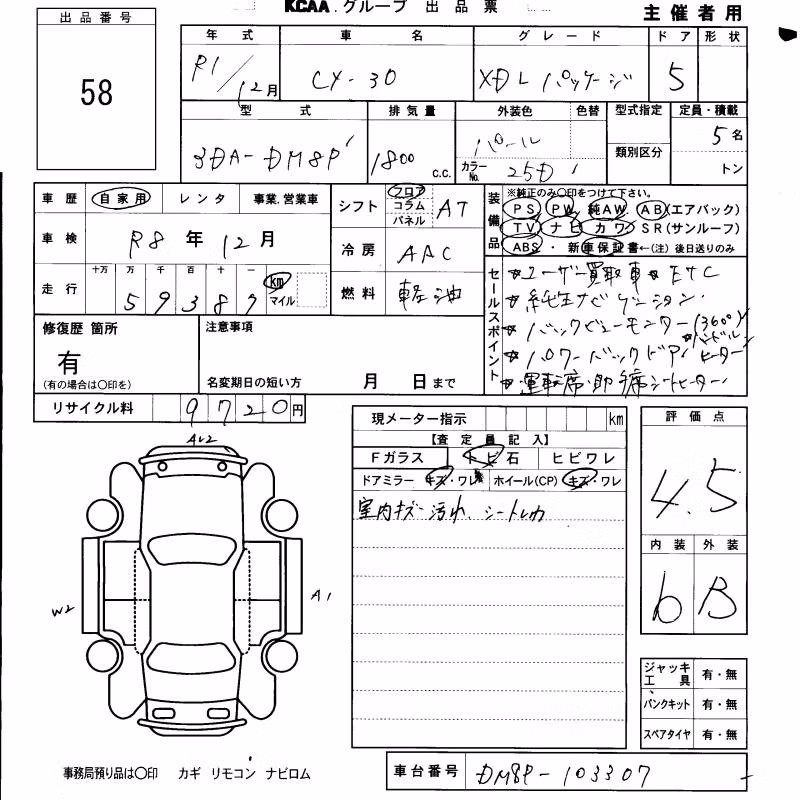 KCAA.グループ 出品票
主催者用
出品番号
58
年式 車名 グレード ドア 形状
R1/12月 CX-30 XDLパッケージ 5
型式 排気量 外装色 色替 型式指定 定員・積載
3DA-DM8P 1800 c.c. パール 類別区分 5名
カラーNo. 25D トン
車歴 自家用 レンタ 事業.営業車
車検 R8年12月
走行 十万 万 千 百 十 一
59387 km マイル
シフト フロア コラム パネル AT
冷房 AAC
燃料 軽油
装備品 ※純正のみ○印をつけて下さい。
PS PW 純AW. AB(エアバック)
TV ナビ カワ SR(サンルーフ)
ABS・新車保証書←(注)後日送りのみ
セールスポイント
☆ユーザー買取車☆ETC
☆純正ナビゲーション
☆バックビューモニター(360°)
☆ハンドルヒーター
☆パワーバックドア
☆運転席・助手席シートヒーター
修復歴 箇所
有
(有の場合は○印を)
注意事項
名変期日の短い方 月 日まで
リサイクル料 9720円
現メーター指示 km
【査定員記入】
Fガラス トビ石 ヒビワレ
ドアミラー キズ・ワレ ホイール(CP) キズ・ワレ
室内キズ 汚れ、シート
評価点
4.5
内装 外装
6 B
AW2
W2
A1
ジャッキ工具 有・無
パンクキット 有・無
スペアタイヤ 有・無
事務局預り品は○印 カギ リモコン ナビロム
車台番号 DM8P-103307